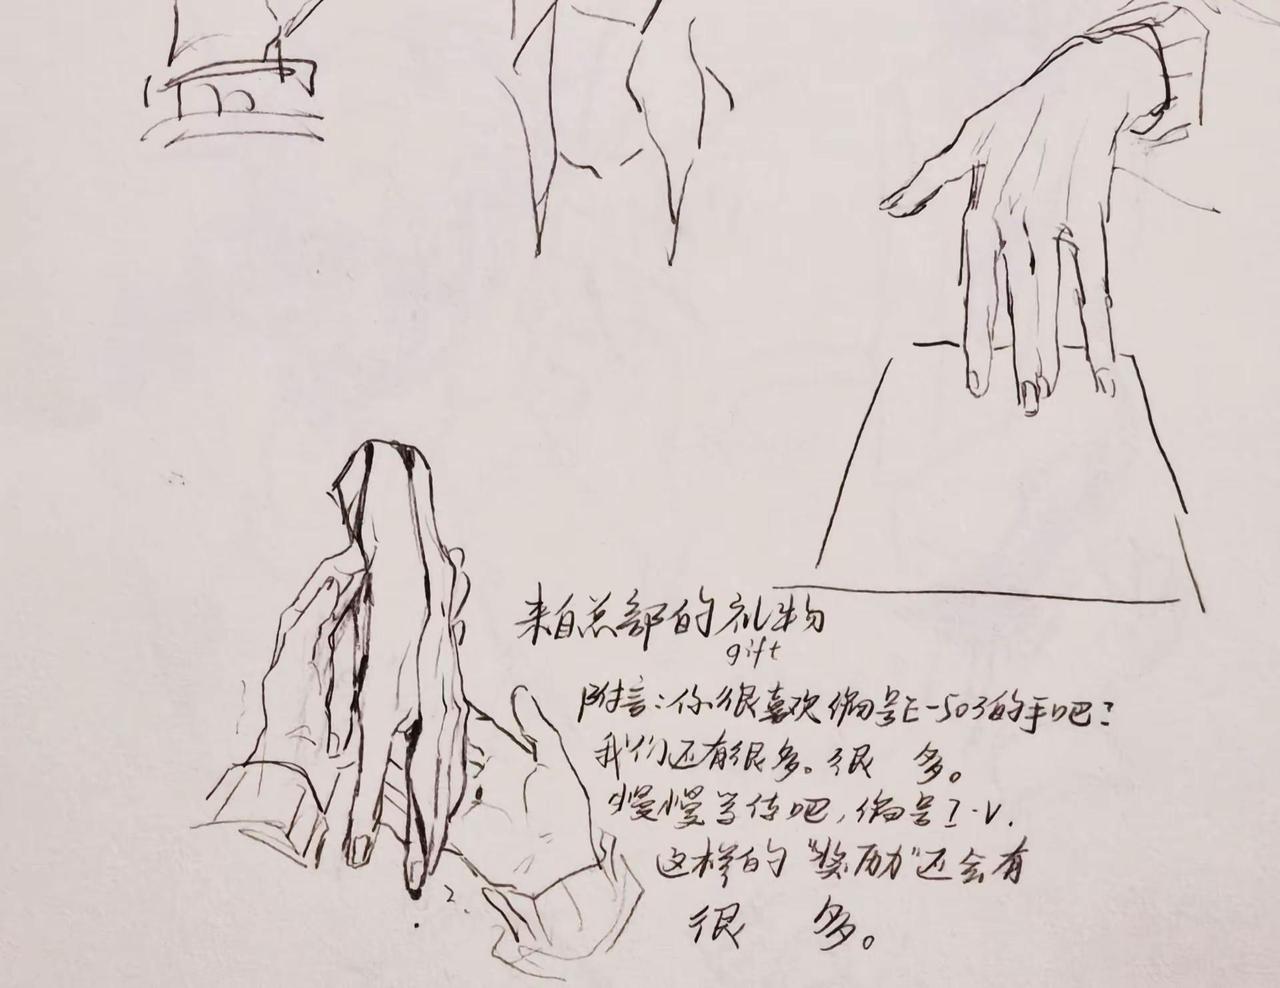 来自总部的礼物
gift
附言：你很喜欢编号E-503的手吧？
我们还有很多。很 多。
慢慢等待吧，编号I-V.
这样的“奖励”还会有
很 多。